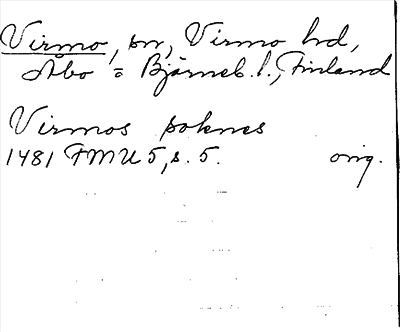 Virmo, sn, Virmo hd,
Åbo = Björneb. l., Finland
Virmos soknes
1481 FMU 5, s. 5. orig.